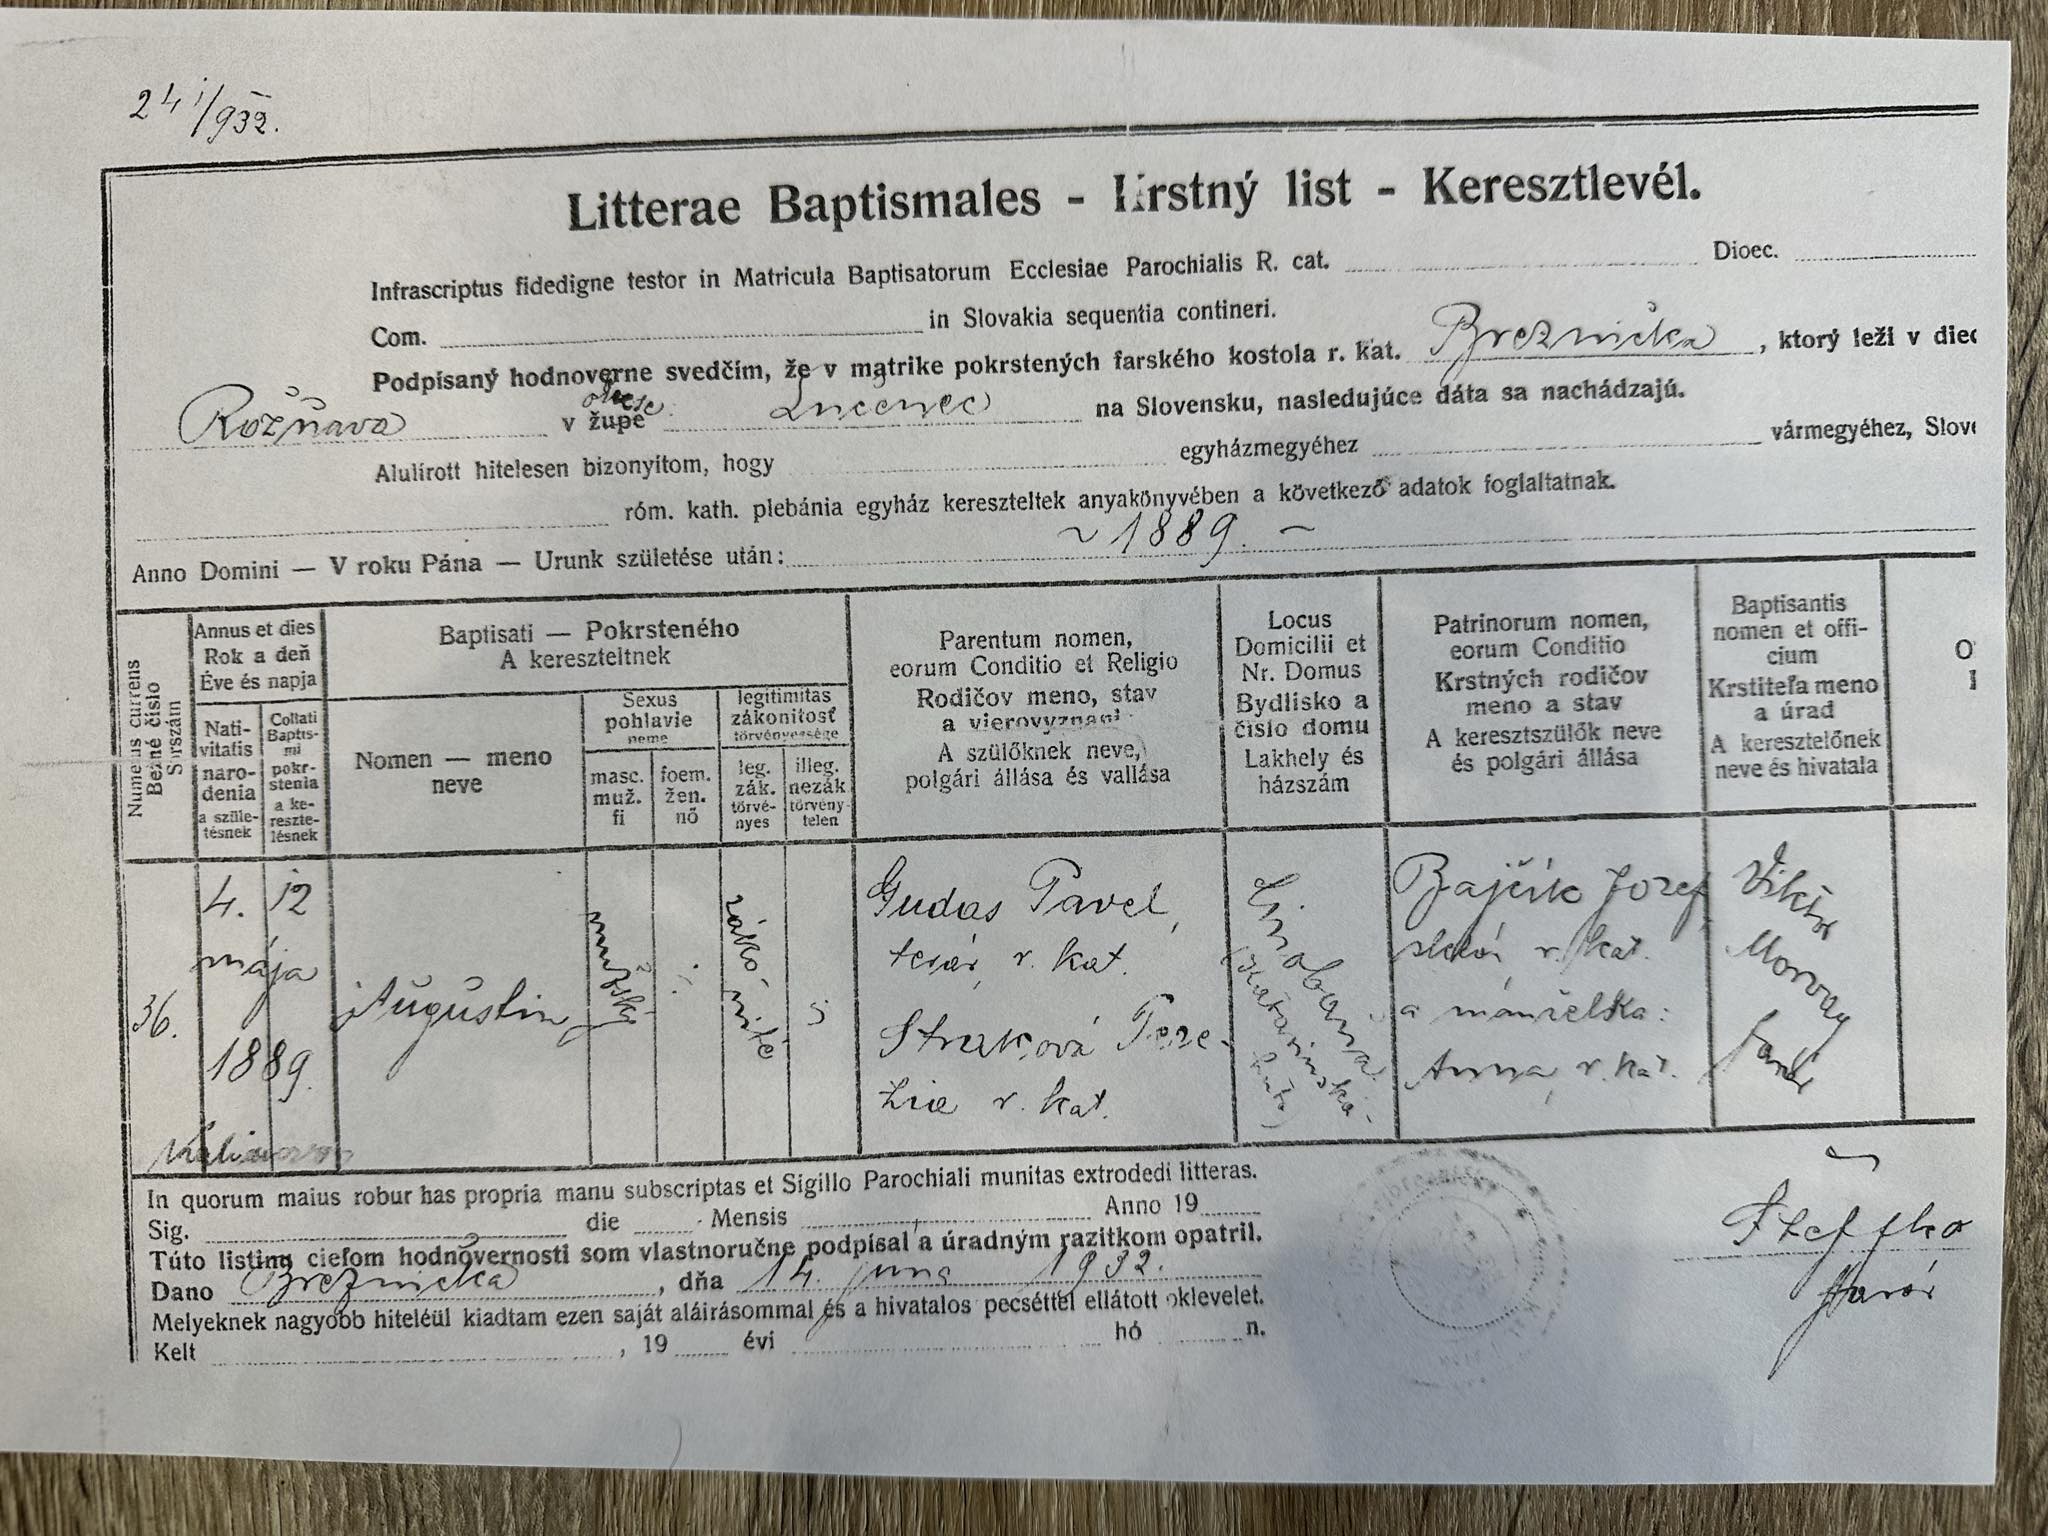 24 I/932.
Litterae Baptismales - Krstný list - Keresztlevél.
Infrascriptus fidedigne testor in Matricula Baptisatorum Ecclesiae Parochialis R. cat. Dioec.
Com. in Slovakia sequentia contineri.
Podpísaný hodnoverne svedčím, že v matrike pokrstených farského kostola r. kat. Breznička, ktorý leží v diec
Rožňava v župe okrese Lučenec na Slovensku, nasledujúce dáta sa nachádzajú.
Alulírott hitelesen bizonyítom, hogy egyházmegyéhez vármegyéhez, Slove
róm. kath. plebánia egyház kereszteltek anyakönyvében a következő adatok foglaltatnak.
Anno Domini — V roku Pána — Urunk születése után: ~ 1889. ~
Numerus currens
Bežné číslo
Sorszám
Annus et dies
Rok a deň
Éve és napja
Nati-
vitatis
naro-
denia
a szüle-
tésnek
Collati
Baptis-
mi
pokr-
stenia
a ke-
reszte-
lésnek
Baptisati — Pokrsteného
A kereszteltnek
Nomen — meno
neve
Sexus
pohlavie
neme
masc.
muž.
fi
foem.
žen.
nő
legitimitas
zákonitosť
törvényessége
leg.
zák.
törvé-
nyes
illeg.
nezák
törvény-
telen
Parentum nomen,
eorum Conditio et Religio
Rodičov meno, stav
a vierovyznani
A szülőknek neve,
polgári állása és vallása
Locus
Domicilii et
Nr. Domus
Bydlisko a
číslo domu
Lakhely és
házszám
Patrinorum nomen,
eorum Conditio
Krstných rodičov
meno a stav
A keresztszülők neve
és polgári állása
Baptisantis
nomen et offi-
cium
Krstiteľa meno
a úrad
A keresztelőnek
neve és hivatala
36.
4. 12
mája
1889.
Augustin
mužské
záko-
nité
Gudas Pavel,
tesár, r. kat.
Straková Tere-
zia r. kat.
Bajčík Jozef,
sklár, r. kat.
a manželka:
Anna, r. kat.
Viktor
Morvay
farár
Kalinovo
In quorum maius robur has propria manu subscriptas et Sigillo Parochiali munitas extrodedi litteras.
Sig. die Mensis Anno 19
Túto listinu cieľom hodnovernosti som vlastnoručne podpísal a úradným razítkom opatril.
Dano Breznička, dňa 14. júna 1932.
Melyeknek nagyobb hiteléül kiadtam ezen saját aláírásommal és a hivatalos pecséttel ellátott oklevelet.
Kelt , 19 évi hó n.
farár